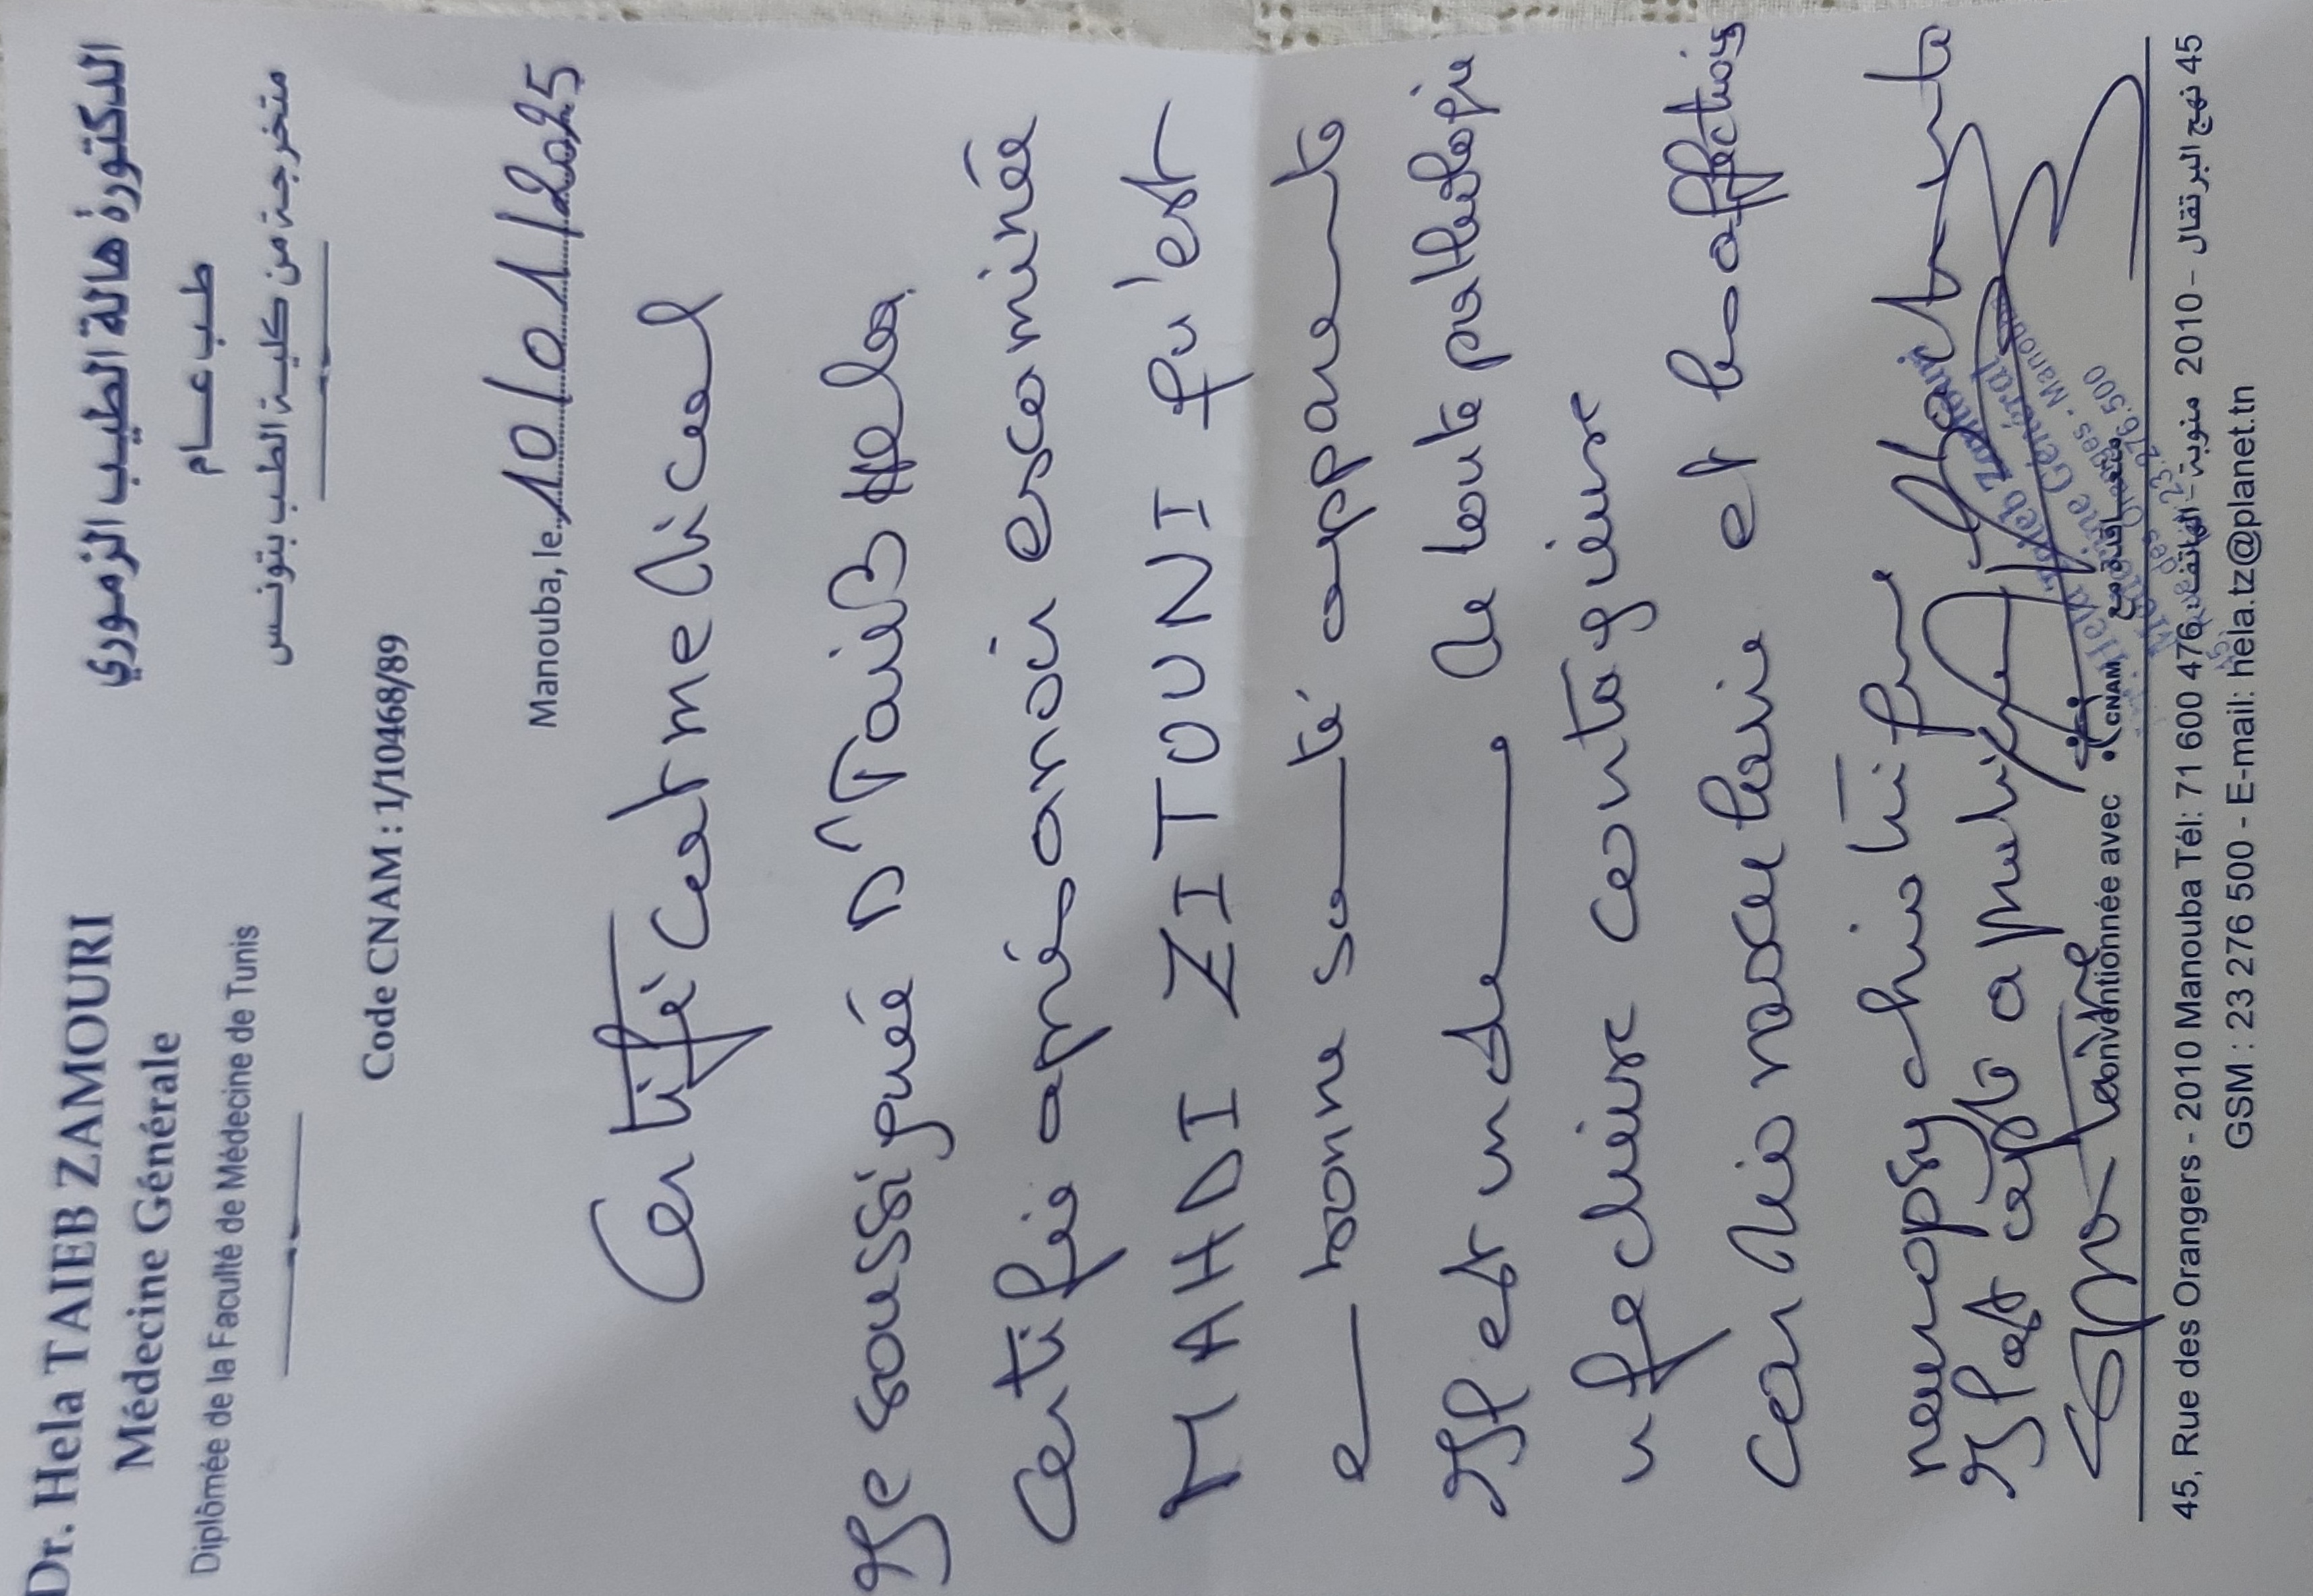 Dr. Hela TAIEB ZAMOURI
Médecine Générale
Diplômée de la Faculté de Médecine de Tunis
الدكتورة هالة الطيب الزموري
طب عام
متخرجة من كلية الطب بتونس
Code CNAM : 1/10468/89
Manouba, le 10/01/2025
Certificat medical
Je soussignée Dr Taieb Hela
Certifie après avoir examiné
MAHDI ZITOUNI qu'est
en bonne santé apparente
Il est indemne de toute pathologie
infectieuse contagieuse
cardiovasculaire et les affections
neuropsychiatrique
Il est apte a
Conventionnée avec CNAM متعاقدة مع
Dr. Hela Taieb Zamouri
Médecine Générale
45, Rue des Oranges - Manouba
23.276.500
45, Rue des Orangers - 2010 Manouba Tél: 71 600 476 الهاتف - منوبة 2010 - نهج البرتقال 45
GSM : 23 276 500 - E-mail: hela.tz@planet.tn